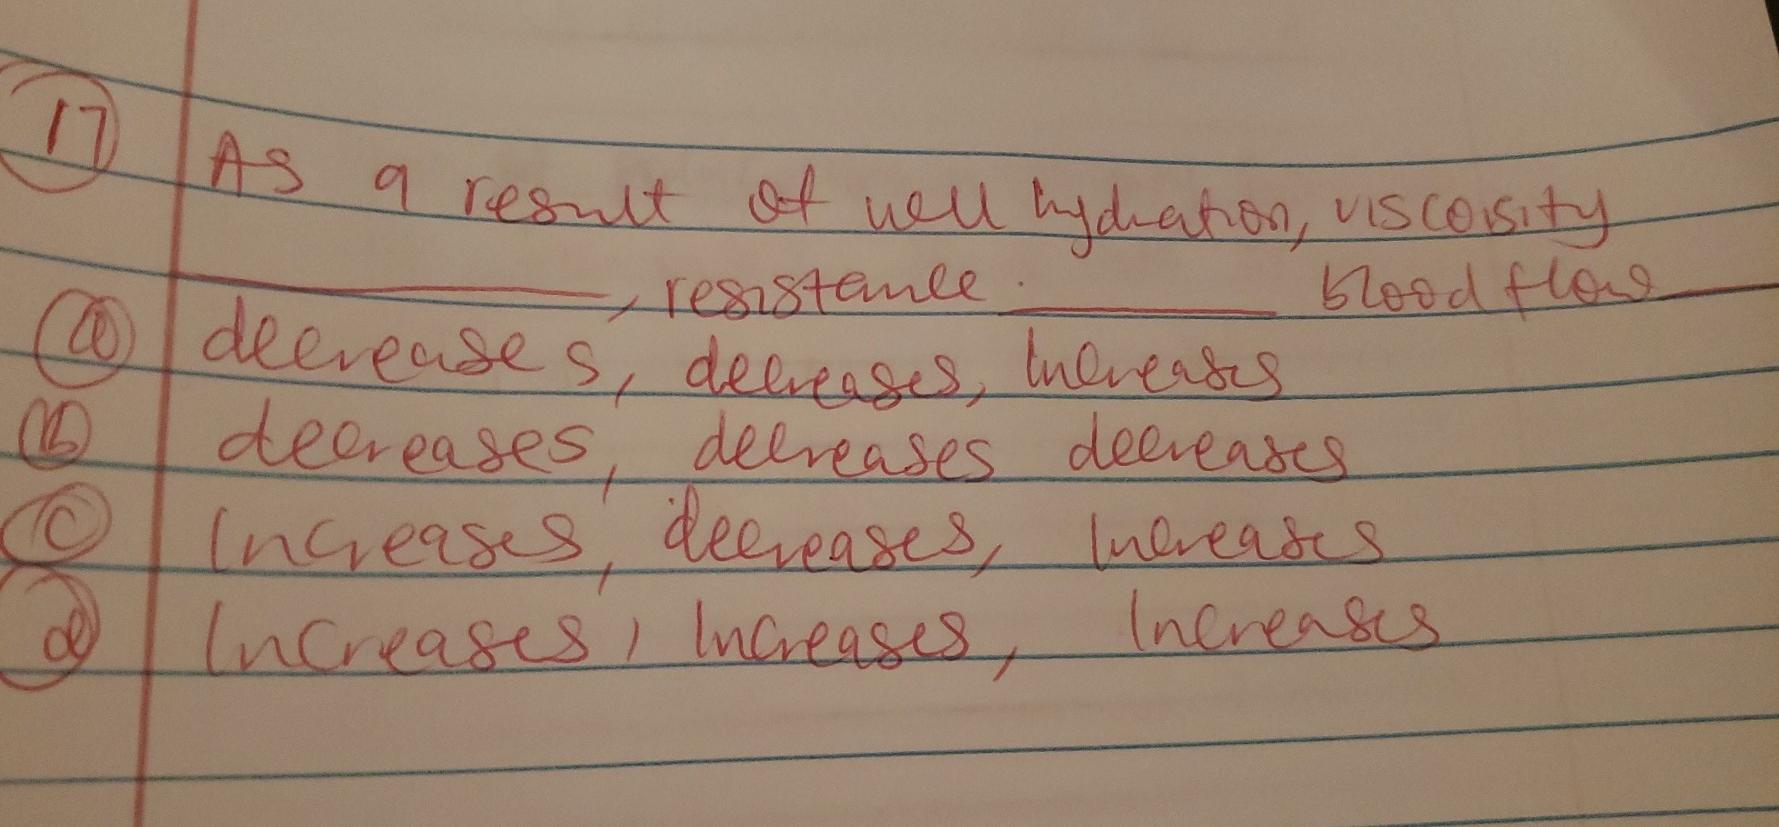 17 As a result of well hydration, viscoisity
________, resistance ________ blood flow ____
a decreases, decreases, increases
b decreases, decreases decreases
c Increases, decreases, increases
d Increases, Increases, Increases